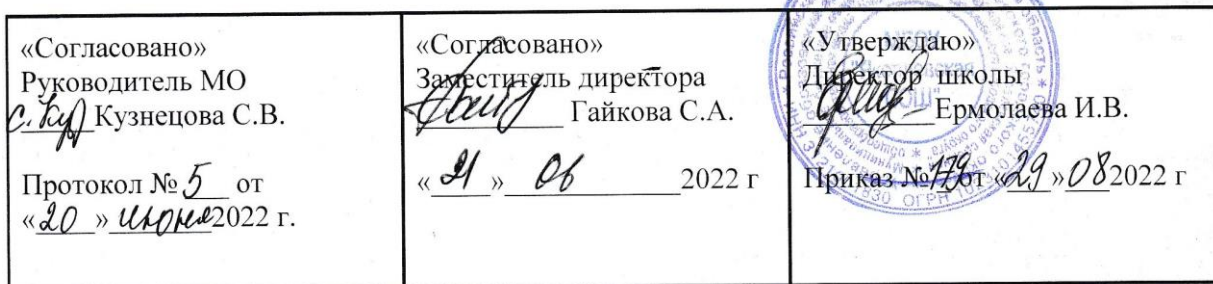 «Согласовано»
Руководитель МО
Кузнецова С.В.
Протокол № 5 от
«20» июня 2022 г.
«Согласовано»
Заместитель директора
Гайкова С.А.
«21» 06 2022 г
«Утверждаю»
Директор школы
Ермолаева И.В.
Приказ №179от «29»082022 г